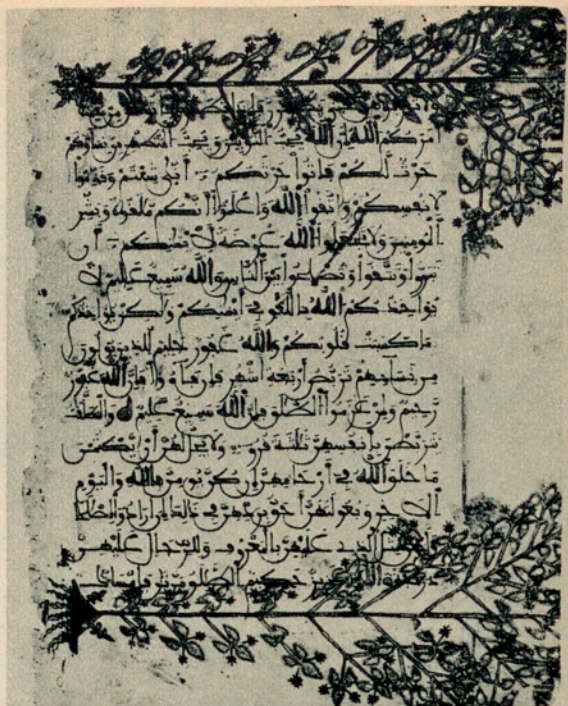 أمركم الله إن الله يحب التوابين ويحب المتطهرين نساؤكم
حرث لكم فاتوا حرثكم أنى شئتم وقدموا
لأنفسكم واتقوا الله واعلموا أنكم ملقوه وبشر
المومنين ولا تجعلوا الله عرضة لأيمنكم أن
تبروا وتتقوا وتصلحوا بين الناس والله سميع عليم لا
يواخذكم الله باللغو في أيمنكم ولكن يواخذكم
بما كسبت قلوبكم والله غفور حليم للذين يولون
من نسايهم تربص أربعة أشهر فإن فاءو فإن الله غفور
رحيم وإن عزموا الطلق فإن الله سميع عليم والمطلقت
يتربصن بأنفسهن ثلثة قروء ولا يحل لهن أن يكتمن
ما خلق الله في أرحامهن إن كن يومن بالله واليوم
الاخر وبعولتهن أحق بردهن في ذلك إن أرادوا إصلحا
ولهن مثل الذي عليهن بالمعروف وللرجال عليهن
درجة والله عزيز حكيم الطلق مرتن فإمساك